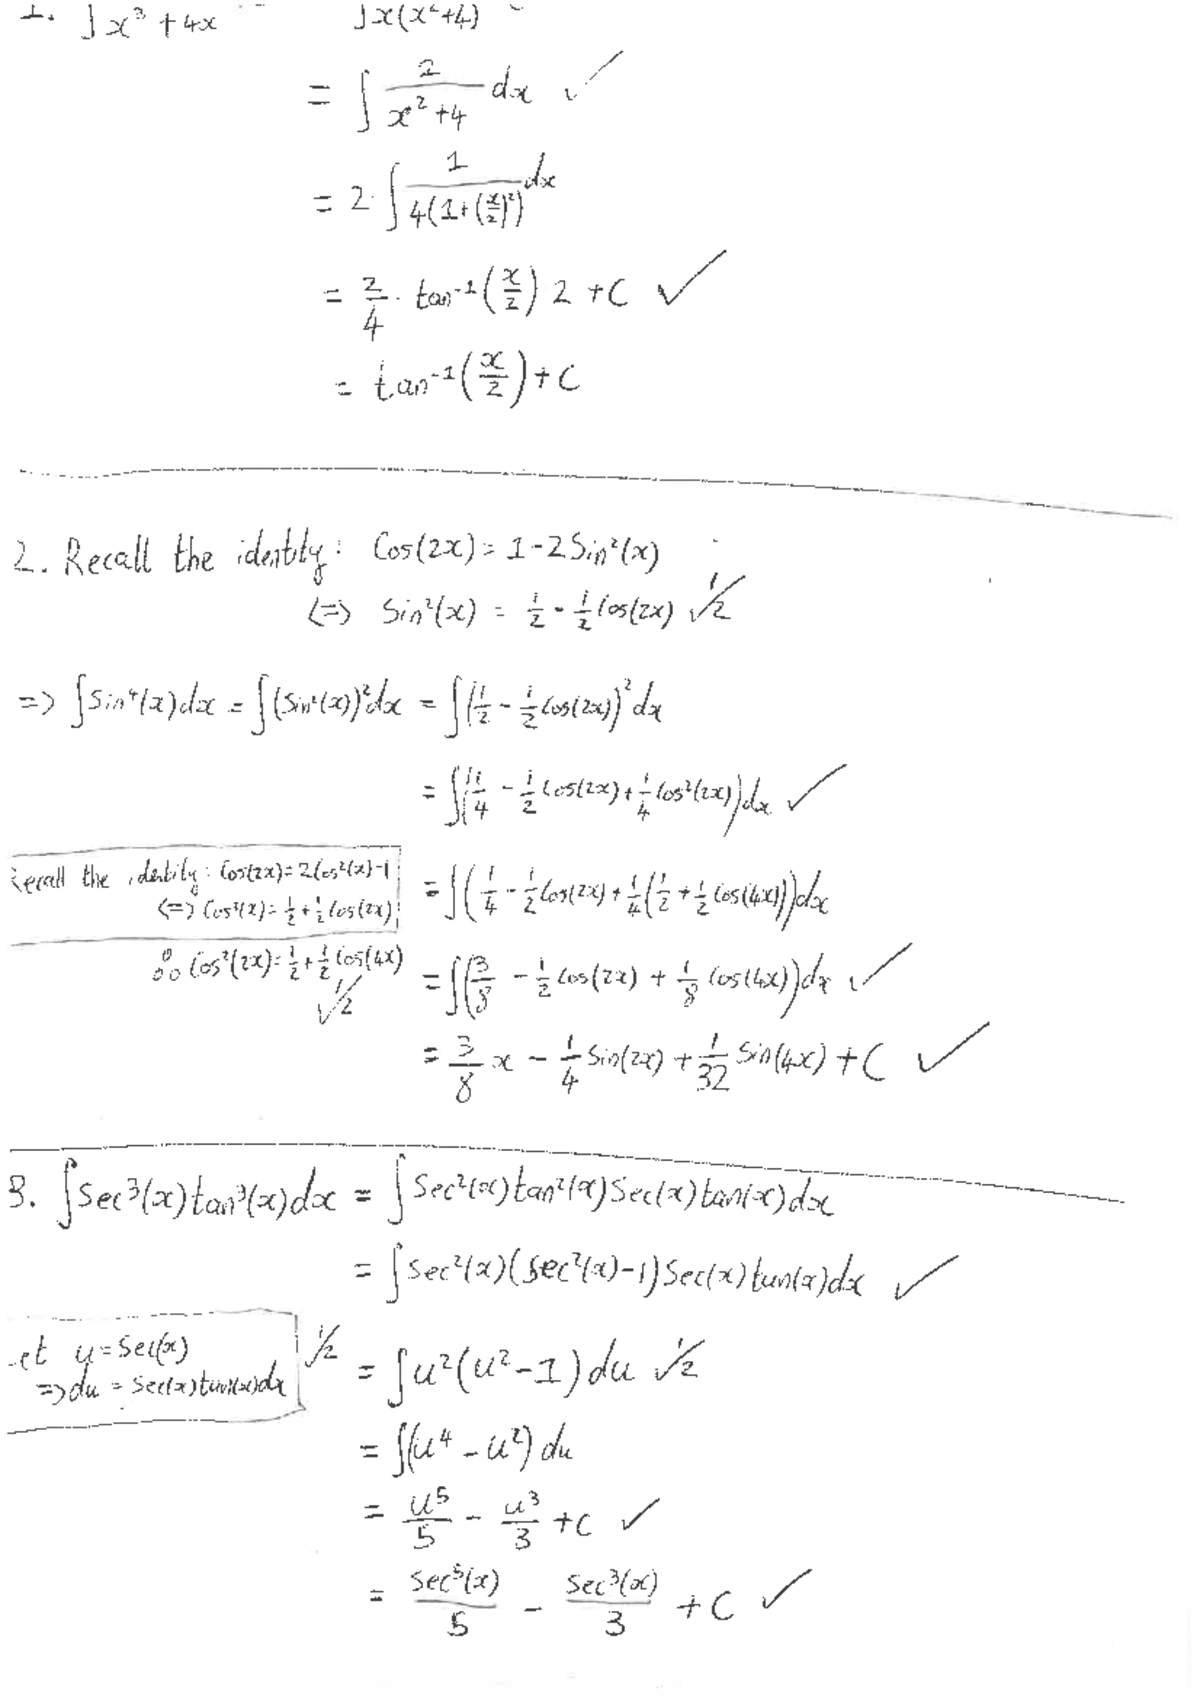 1. ∫ x³ + 4x ∫ x(x²+4)
= ∫ 2/(x²+4) dx ✓
= 2 · ∫ 1/(4(1+(x/2)²)) dx
= 2/4 · tan⁻¹(x/2) 2 + C ✓
= tan⁻¹(x/2) + C
2. Recall the identity: Cos(2x) = 1 - 2Sin²(x)
<=> Sin²(x) = 1/2 - 1/2 Cos(2x) ✓1/2
=> ∫Sin⁴(x)dx = ∫(Sin²(x))²dx = ∫(1/2 - 1/2 Cos(2x))²dx
= ∫(1/4 - 1/2 Cos(2x) + 1/4 Cos²(2x))dx ✓
Recall the identity: Cos(2x) = 2Cos²(x)-1
<=> Cos²(x) = 1/2 + 1/2 Cos(2x)
= ∫(1/4 - 1/2 Cos(2x) + 1/4(1/2 + 1/2 Cos(4x)))dx
∴ Cos²(2x) = 1/2 + 1/2 Cos(4x) ✓1/2
= ∫(3/8 - 1/2 Cos(2x) + 1/8 Cos(4x))dx ✓
= 3/8 x - 1/4 Sin(2x) + 1/32 Sin(4x) + C ✓
3. ∫Sec³(x)tan³(x)dx = ∫Sec²(x)tan²(x)Sec(x)tan(x)dx
= ∫Sec²(x)(Sec²(x)-1)Sec(x)tan(x)dx ✓
et u = Sec(x)
=> du = Sec(x)tan(x)dx ✓1/2
= ∫u²(u²-1)du ✓1/2
= ∫(u⁴ - u²)du
= u⁵/5 - u³/3 + C ✓
= Sec⁵(x)/5 - Sec³(x)/3 + C ✓